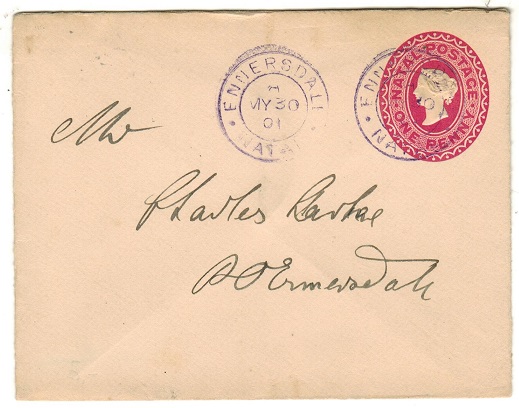 ENNERSDALE
A
MY 30
01
NATAL
NATAL POSTAGE
ONE PENNY
Mr
Charles
P O Ennersdale